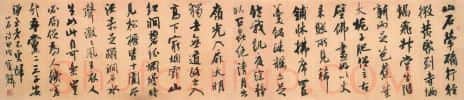 山石犖确行徑
微黄昏到寺蝙
蝠飛升堂坐階
新雨足芭蕉葉
大梔子肥僧言古
壁佛畫好以火
來照所見稀
鋪床拂席
置羹飯疏糲亦
足飽我飢夜深靜
卧百蟲絕清月出
嶺光入扉天明
獨去無道路出入
高下窮煙霏山
紅澗碧紛爛漫時見
松櫪皆十圍當
流赤足蹋澗石水
聲激激風吹衣人
生如此自可樂豈
必局束為人鞿嗟
哉吾黨二三子安
得至老不更歸